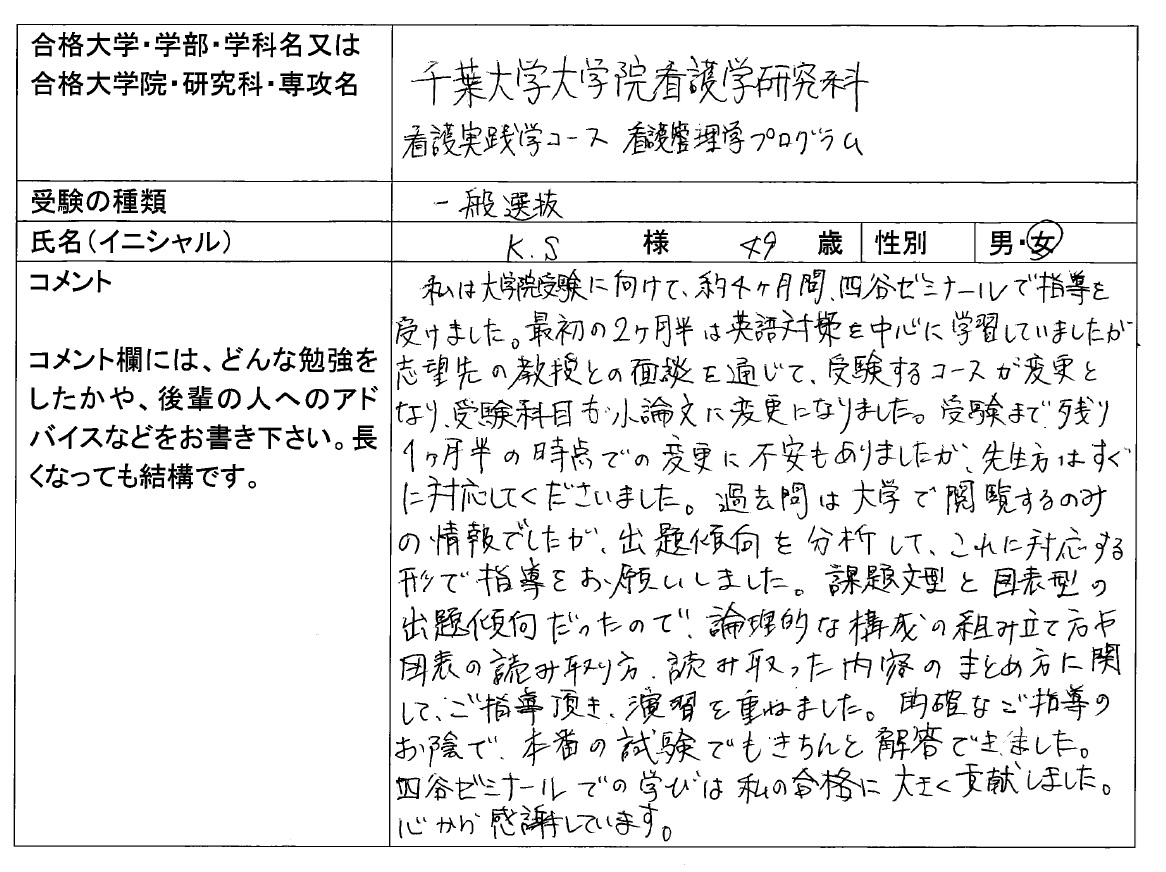 合格大学・学部・学科名又は
合格大学院・研究科・専攻名
千葉大学大学院看護学研究科
看護実践学コース 看護管理学プログラム
受験の種類
一般選抜
氏名(イニシャル)
K.S 様 49 歳 性別 男・女
コメント
コメント欄には、どんな勉強を
したかや、後輩の人へのアド
バイスなどをお書き下さい。長
くなっても結構です。
私は大学院受験に向けて、約4ヶ月間、四谷ゼミナールで指導を
受けました。最初の2ヶ月半は英語対策を中心に学習していましたが
志望先の教授との面談を通じて、受験するコースが変更と
なり、受験科目も小論文に変更になりました。受験まで残り
1ヶ月半の時点での変更に不安もありましたが、先生方はすぐ
に対応してくださいました。過去問は大学で閲覧するのみ
の情報でしたが、出題傾向を分析して、これに対応する
形で指導をお願いしました。課題文型と図表型の
出題傾向だったので、論理的な構成の組み立て方や
図表の読み取り方、読み取った内容のまとめ方に関
して、ご指導頂き、演習を重ねました。的確なご指導の
お陰で、本番の試験でもきちんと解答できました。
四谷ゼミナールでの学びは私の合格に大きく貢献しました。
心から感謝しています。